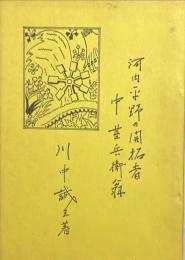 河内平野の開拓者
中甚兵衛翁
川中誠三著